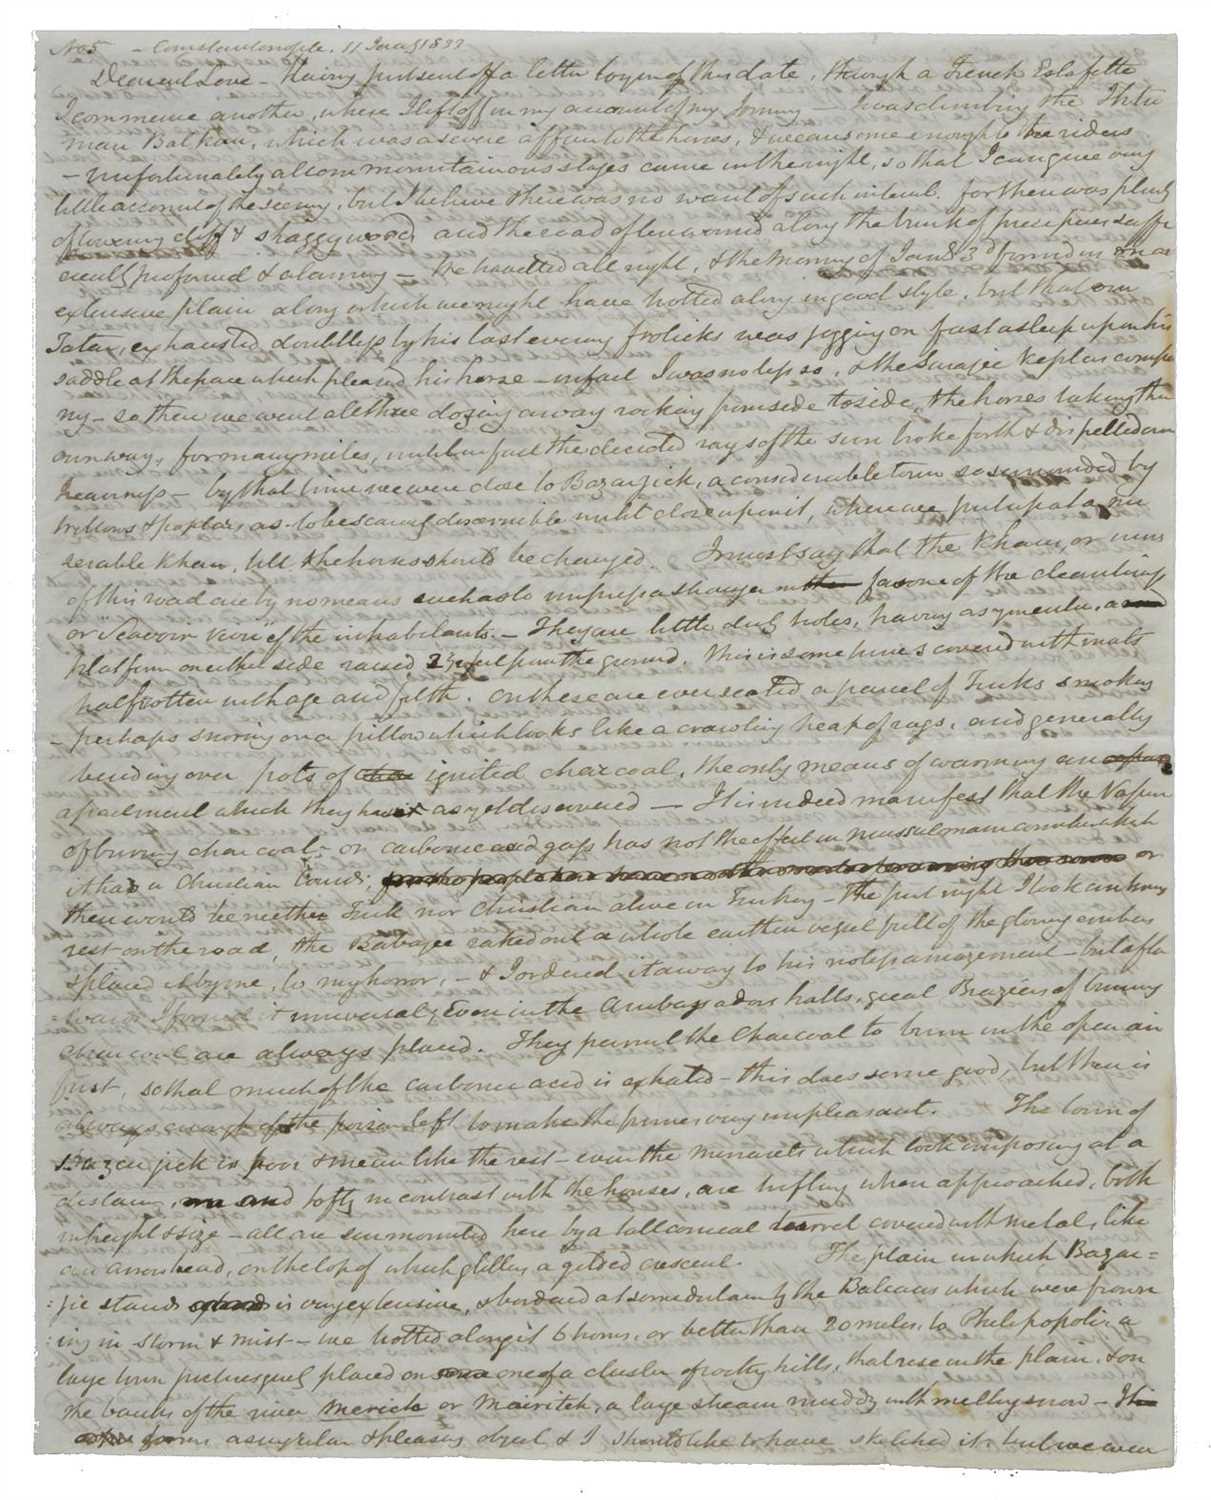 No 5 – Constantinople. 11 Jany 18
Dearest Love – Having just sent off a letter to you of this date, through a French Estafette
I commence another, where I left off in my account of my journey – I was climbing the Ihtu
man Balkan, which was a severe affair to the horses, & wearisome enough to the riders
– unfortunately all our mountainous stages came in the night, so that I can give very
little account of the scenery, but I believe there was no want of such interest. for there was plenty
of towering cliff & shaggy wood and the road often wound along the brink of precipices suffi
ciently profound & alarming – We trotted all night, & the morning of Jany 3d found us on an
extensive plain along which we might have trotted along in good style, but that our
Tatar, exhausted doubtless by his last evening frolicks was jogging on fast asleep upon his
saddle at the pace which pleased his horse – in fact I was no less so, & the Surajee kept us compa
ny – so then we went all three dozing away rocking from side to side, the horses taking their
own way, for many miles, until in fact the decided rays of the sun broke forth & dispelled our
heaviness – by that time we were close to Bazarjick, a considerable town so surrounded by
willows & poplars as to be scarcely discernible until close upon it, where we put up at a mi
serable Khan, till the horses should be changed. I must say that the Khans, or inns
of this road are by no means such as to impress a stranger in favour of the cleanliness
or "Scavoir vivre" of the inhabitants. – They are little dusty holes, having as you enter, a
platform on either side raised 2 feet from the ground. This is sometimes covered with mats
half rotten with age and filth. On these are ever seated a parcel of Turks smoking
– perhaps snoring on a pillow which looks like a crawling heap of rags, and generally
bending over pots of ignited charcoal, the only means of warming an
apartment which they have as yet discovered – It is indeed manifest that the vapour
of burning charcoal – or carbonic acid gass has not the effect on mussulmaun constitution
it has on Christian lungs, or
there would be neither Turk nor Christian alive in Turkey – The first night I took an hours
rest on the road, the Babajee raked out a whole earthen vessel full of the glowing embers
& placed it by me, to my horror, – & I ordered it away to his no less amazement – but after
wards I found it universal, Even in the Ambassadors halls, great Braziers of burning
charcoal are always placed. They permit the charcoal to burn in the open air
first, so that much of the carbonic acid is exhaled – this does some good, but there is
always enough of the poison left to make the fumes very unpleasant. The town of
Bazarjick is poor & mean like the rest – even the minarets which look imposing at a
distance, and lofty in contrast with the houses, are trifling when approached, both
in height & size – all are surmounted here by a tall conical covered with metal, like
an arrowhead, on the top of which glitters a gilded crescent. The plain in which Bazar=
:jic stands is very extensive, & bordered at some distance by the Balcans which were frown
:ing in storm & mist – we trotted along it 6 hours, or better than 20 miles, to Philipopolis, a
large town picturesquely placed on one of a cluster of rocky hills, that rise in the plain, & on
the banks of the river Merick or Mairitch, a large stream muddy with melting snow – It
forms a singular & pleasing object & I should like to have sketched it, but we were